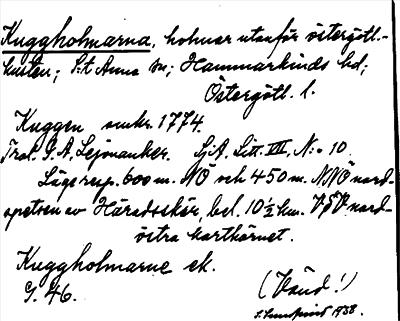 Kuggholmarna, holmar utanför östergötl.-
kusten; S:t Anna sn; Hammarkinds hd;
Östergötl. l.
Kuggen omkr. 1774.
Trol. G. A. Lejonanker. Sj.A. Litt. VIII, N:o 10.
Läge resp. 600 m. NO och 450 m. NNO nord-
spetsen av Häradsskär, bel. 10½ km. VSV nord-
östra kartkörnet.
Kuggholmarne ek.
G. 46.
(Vänd!)
1938.